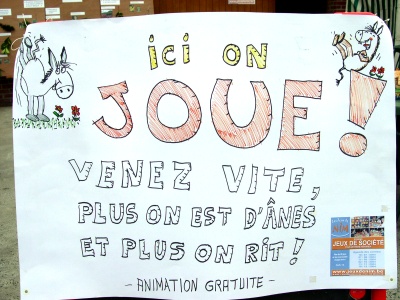 ici on
JOUE !
VENEZ VITE,
PLUS ON EST D'ÂNES
ET PLUS ON RIT !
- ANIMATION GRATUITE -
JEUX DE SOCIÉTÉ